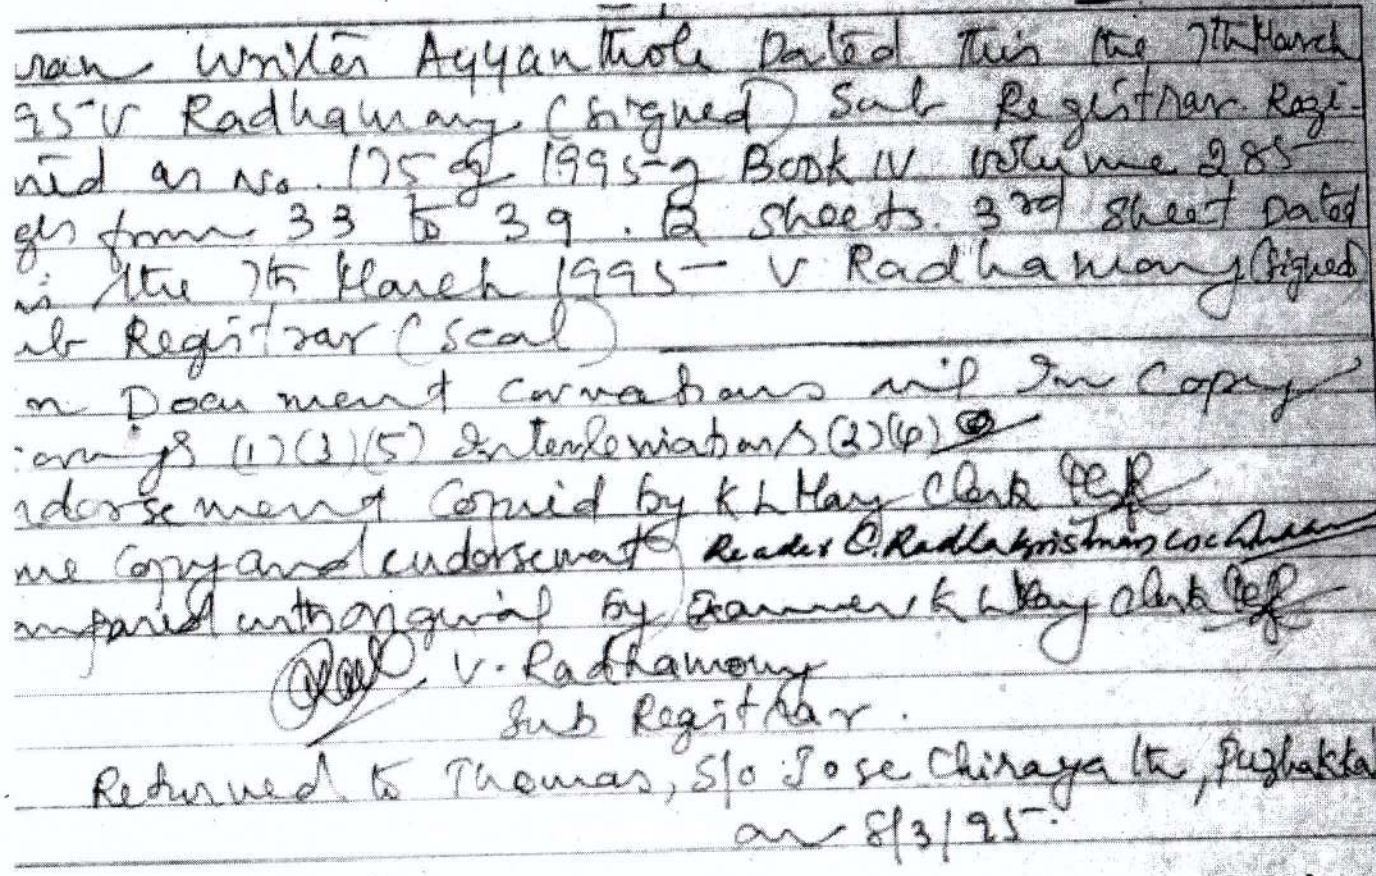 ran writer Ayyanthole Dated this the 7th March
95 V Radhamany (signed) Sub Registrar. Regi-
red as No. 175 of 1995 of Book IV volume 285
ges from 33 to 39. 2 sheets. 3rd sheet Dated
is the 7th March 1995 - V Radhamony (signed)
ub Registrar (Seal)
n Document corrections nil In Copy
(1)(3)(5) Interleniations (2)(4)
ndorsement Copied by K L Mary Clerk
me Copy and endorsement Reader C. Radhakrishnan
mpared with original by Examiner K L Mary Clerk
V. Radhamony
Sub Registrar.
Returned to Thomas, S/o Jose Chirayath, Puzhakkal
on 8/3/95.